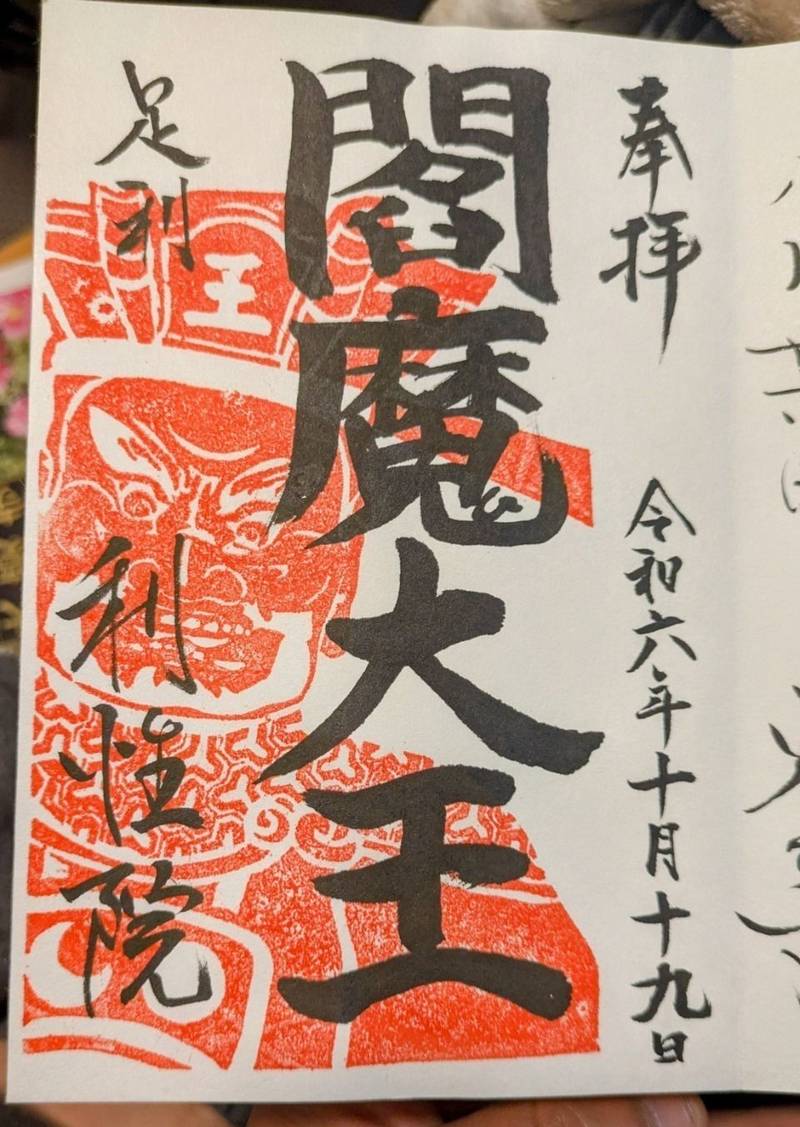 奉拝
令和六年十月十九日
閻魔大王
王
足利
利性院